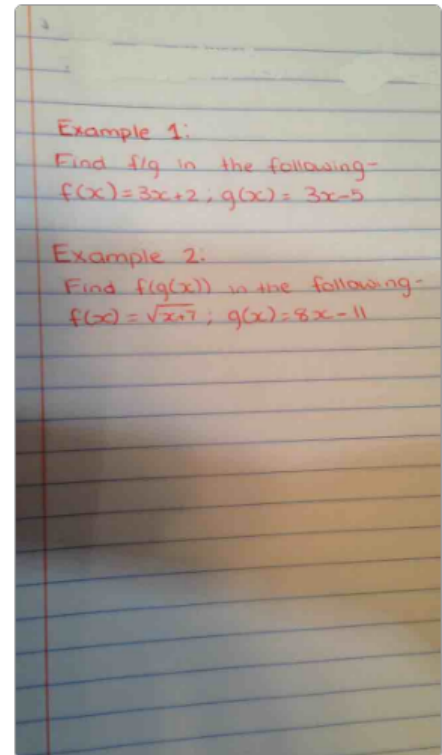 Example 1:
Find f/g in the following-
f(x)=3x+2; g(x)= 3x-5
Example 2:
Find f(g(x)) in the following-
f(x)=√x+7; g(x)=8x-11